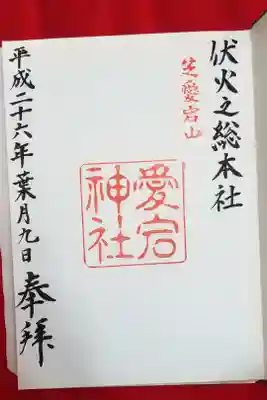 伏火之総本社
芝愛宕山
愛宕
神社
奉拝
平成二十六年葉月九日